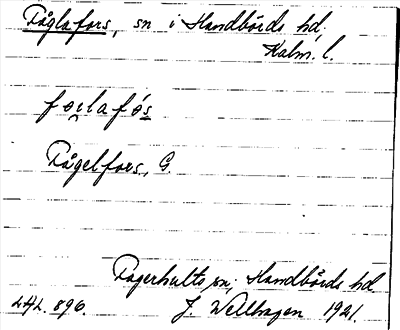 Fåglafors, sn i Handbörds hd,
Kalm. l.
foglafós
Fågelfors, G.
Fagerhults sn; Handbörds hd
L4L. 896. J. Wellhagen 1921.